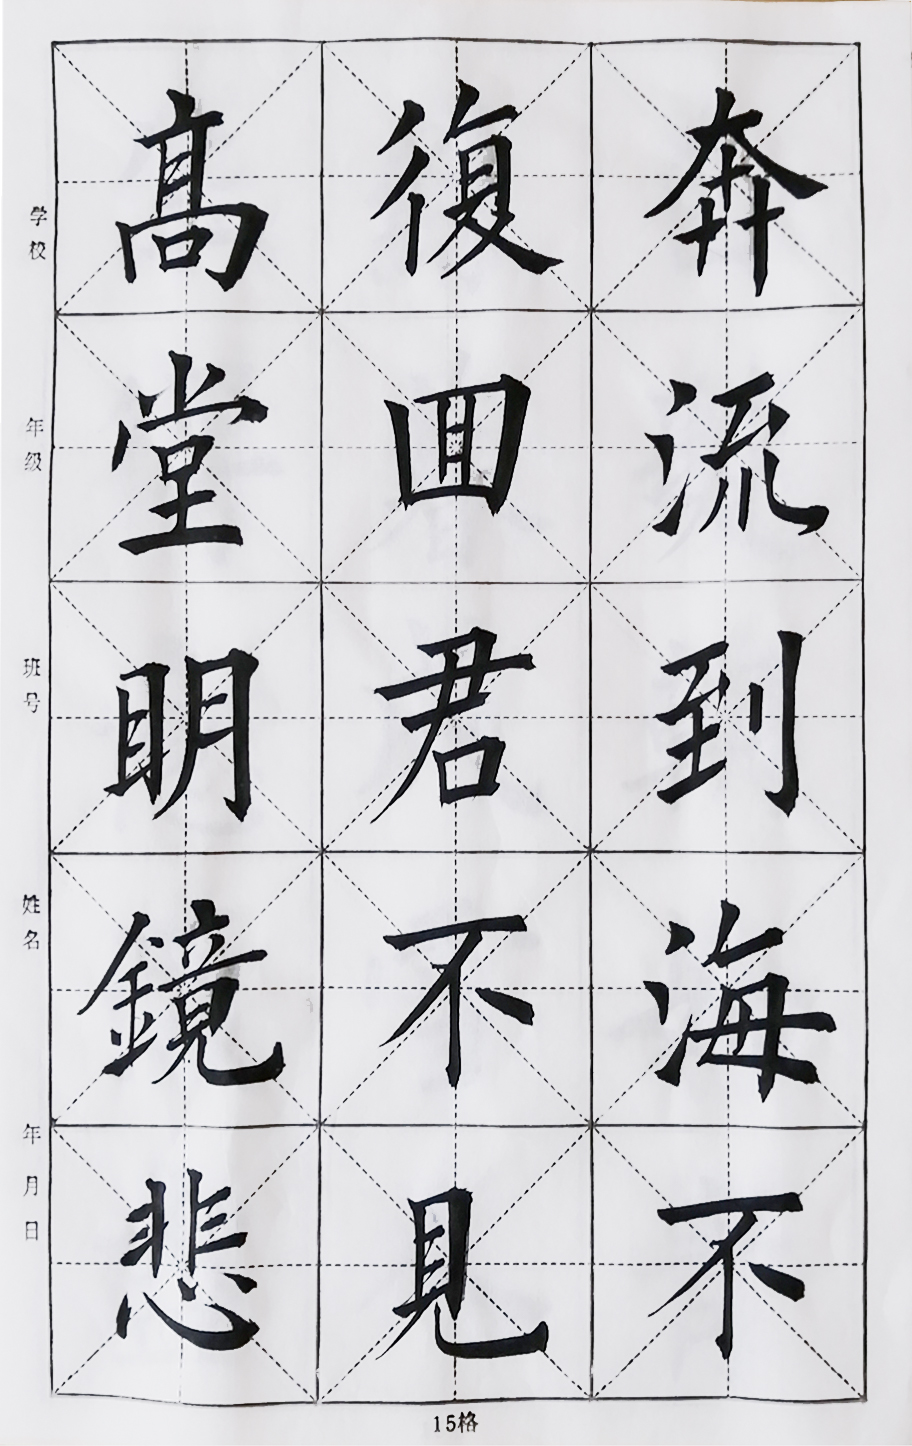 奔流到海不
復囬君不見
髙堂明鏡悲
学校
年级
班号
姓名
年月日
15格